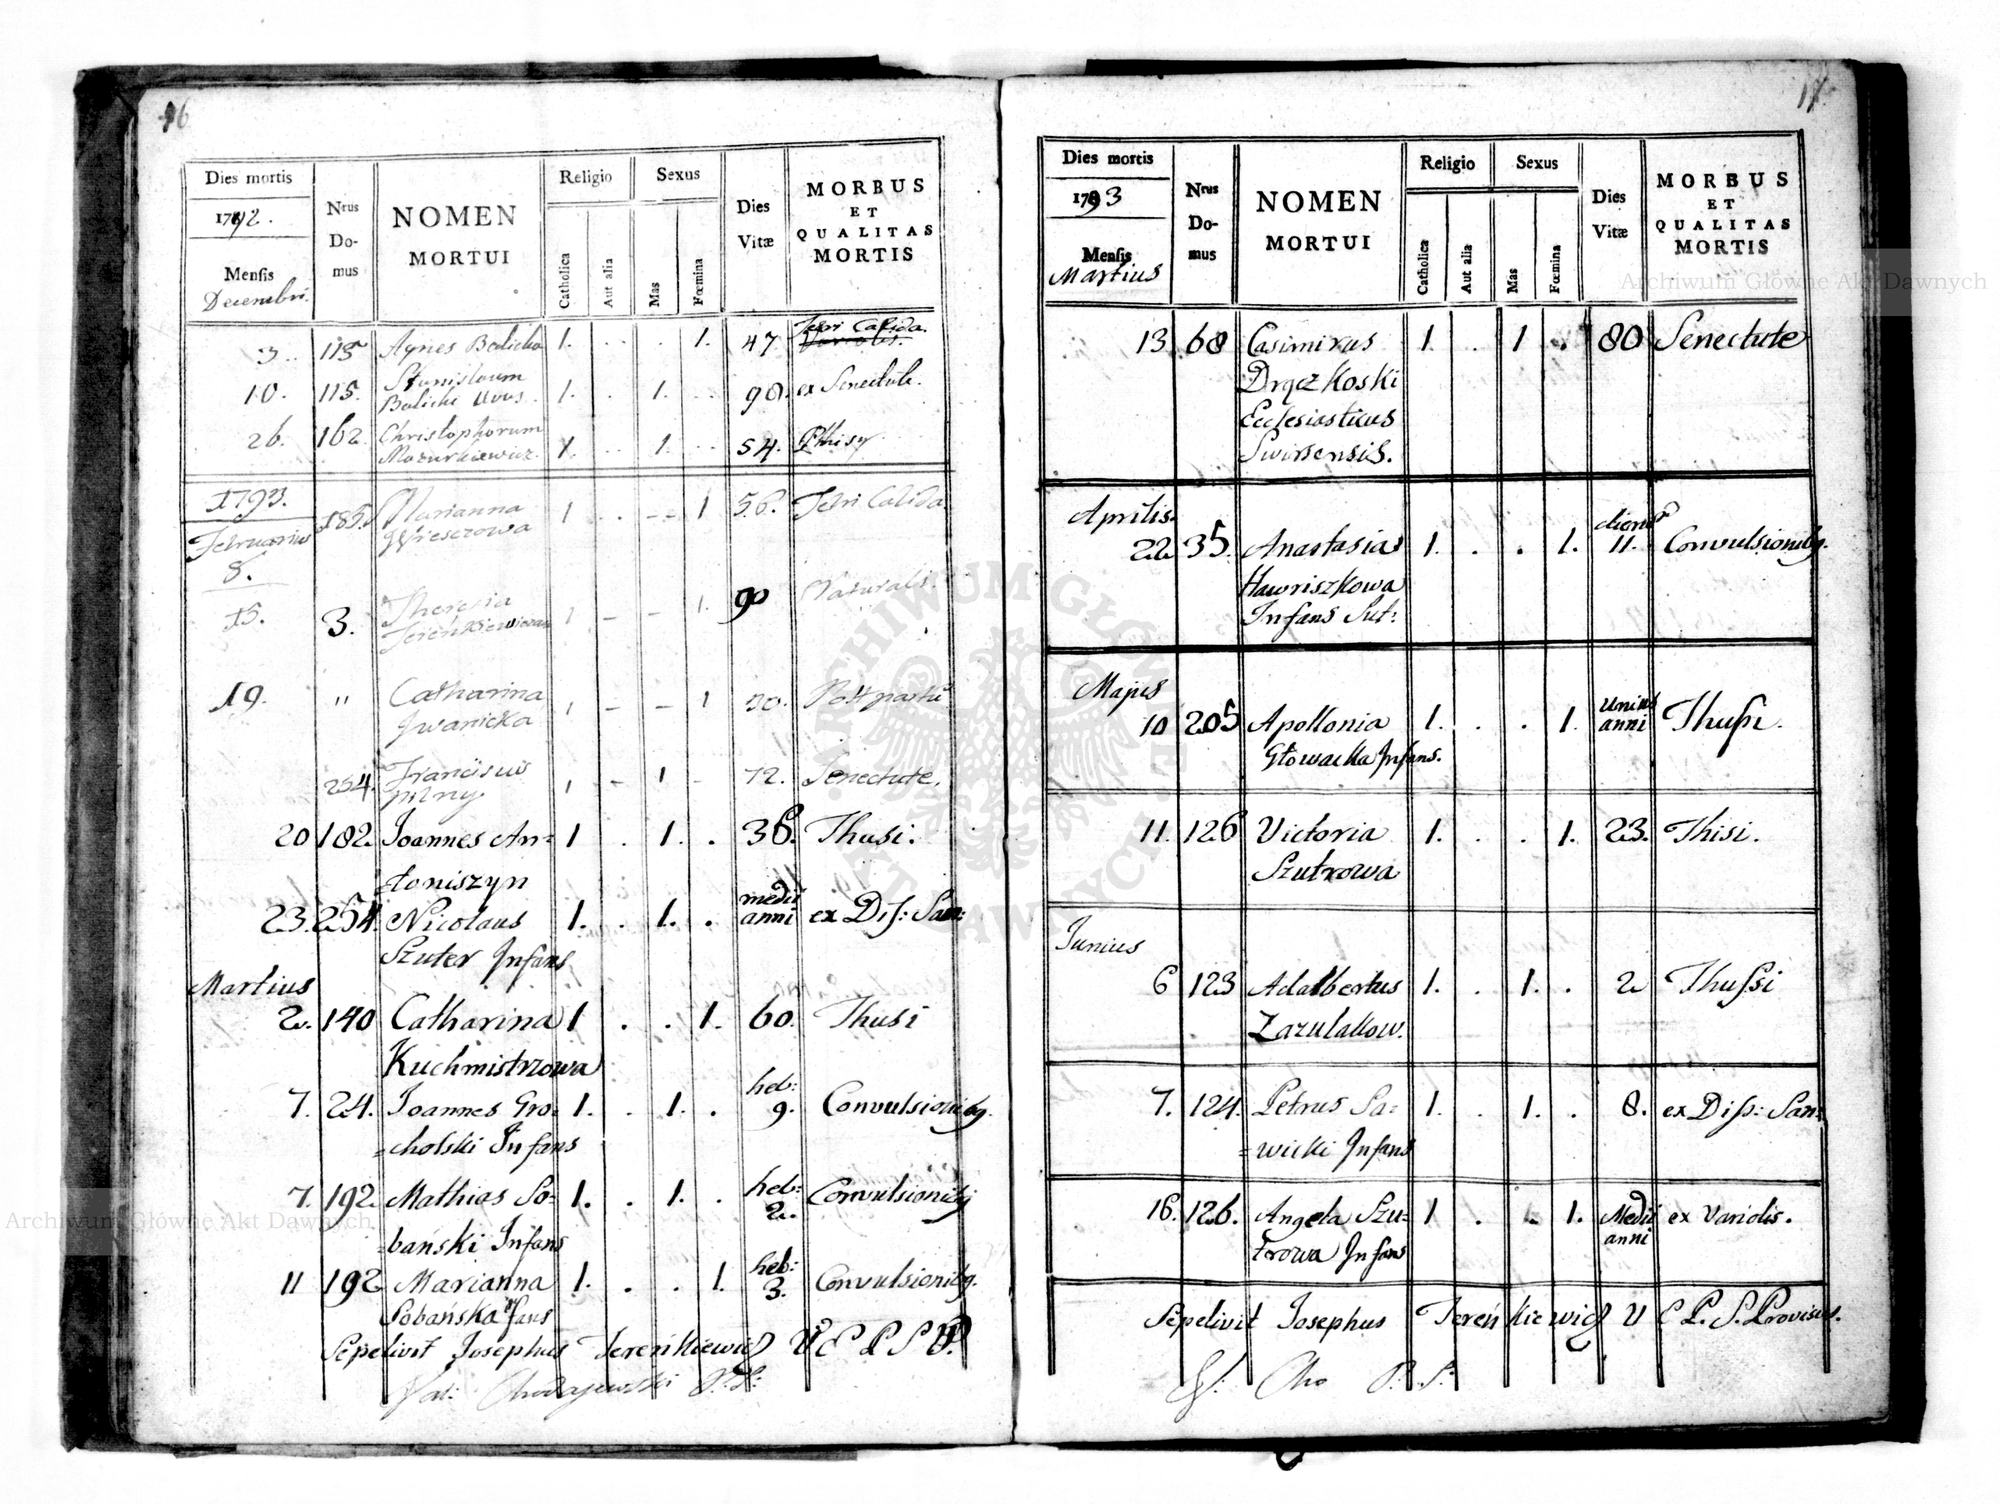 16
Dies mortis
1792.
Mensis
Decembri.
Nrus Domus
NOMEN
MORTUI
Religio
Catholica
Aut alia
Sexus
Mas
Fœmina
Dies
Vitæ
MORBUS
ET
QUALITAS
MORTIS
3. 115 Agnes Balicka 1. . . 1. 47 Febri Calida.
10. 115. Stanislaum
Balicki 1. . 1. . 90. ex Senectute.
26. 162. Christophorum
Mazurkiewicz. 1. . . 1. . . 54. Phisy
1793.
Februarius
8. 185. Marianna
Wieszowa 1 . . - - 1 56. Febri Calida
15. 3. Theresia
Tereńkiewiczowa 1 - - 1. 90 Naturalis.
19. " Catharina
Iwanicka 1 - - 1 30. Post partu
254. Franciscus
Pilny 1 - 1 - 72. Senectute.
20 182. Joannes An=
toniszyn 1 . 1. . 36. Thusi.
23. 254. Nicolaus
Szuter Infans 1. . 1. . medii
anni ex Diss: San:
Martius
2. 140 Catharina
Kuchmistrzowa 1 . . 1. 60. Thusi
7. 24. Joannes Gro=
=cholski Infans 1. . 1. . heb:
9. Convulsionibq.
7. 192. Mathias So=
=bański Infans 1. . 1. . heb:
2. Convulsionibq
11 192 Marianna
Sobańska Infans 1. . . 1. heb:
3. Convulsionibq.
Sepelivit Josephus Tereńkiewicz V C P S P.
Chodajewski
17
Dies mortis
1793
Mensis
Martius
Nrus
Domus
NOMEN
MORTUI
Religio
Catholica
Aut alia
Sexus
Mas
Fœmina
Dies
Vitæ
MORBUS
ET
QUALITAS
MORTIS
13 68 Casimirus
Drączkoski
Ecclesiasticus
Swirsensis. 1. . 1 . 80 Senectute
Aprilis.
22. 35. Anastasia
Hawriszkowa
Infans Sut: 1. . . 1. dierū
11. Convulsionibq.
Majus
10 205 Apollonia
Głowacka Infans. 1. . . 1. Unius
anni Thussi.
11. 126 Victoria
Szutrowa 1. . . 1. 23. Thisi.
Junius
6 123 Adalbertus
Zazulakow. 1. . 1. . 2 Thussi
7. 124. Petrus Sa=
=wicki Infans 1. . 1. . 8. ex Diss: San:
16. 126. Angela Szu=
trowa Infans 1 . . 1. Medii
anni ex Variolis.
Sepelivit Josephus Tereńkiewicz V C P. S. Provisus.
Cho
Archiwum Główne Akt Dawnych
Archiwum Główne Akt Dawnych
ARCHIWUM GŁÓWNE AKT DAWNYCH